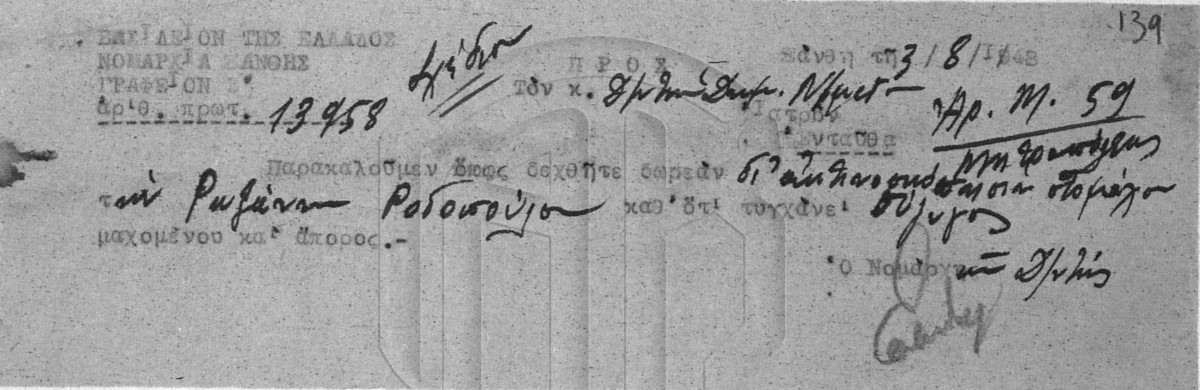 139
ΒΑΣΙΛΕΙΟΝ ΤΗΣ ΕΛΛΑΔΟΣ
ΝΟΜΑΡΧΙΑ ΞΑΝΘΗΣ
ΓΡΑΦΕΙΟΝ
ἀριθ. πρωτ. 13958
Ξάνθη τῇ 3/8/1948
ΠΡΟΣ
Τὸν κ. Δ/ντὴν
Ἰατρὸν
Ἐνταῦθα
Ἀρ. Μ. 59
Παρακαλοῦμεν ὅπως δεχθῆτε δωρεὰν δι'
τὴν Ροδοπούλου καθ' ὅτι τυγχάνει σύζυγος
μαχομένου καὶ ἄπορος.-
Ὁ Νομάρχης
Δ/ντής